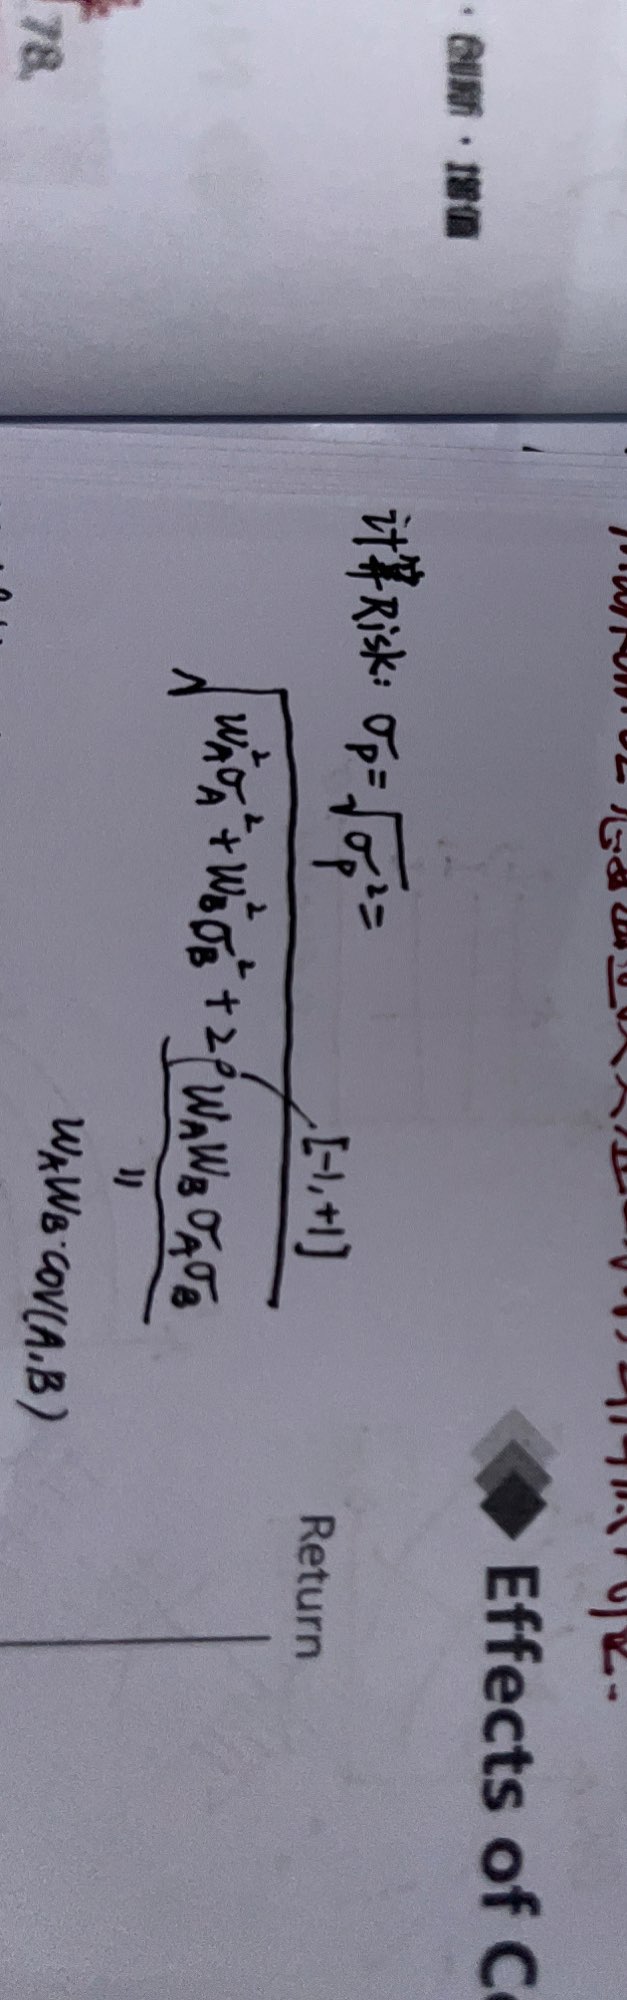 · 创新 · 增值
78
计算Risk: σ_P = √σ_P² =
√W_A²σ_A² + W_B²σ_B² + 2ρW_AW_Bσ_Aσ_B
[-1, +1]
=
W_AW_B·COV(A,B)
Effects of C
Return